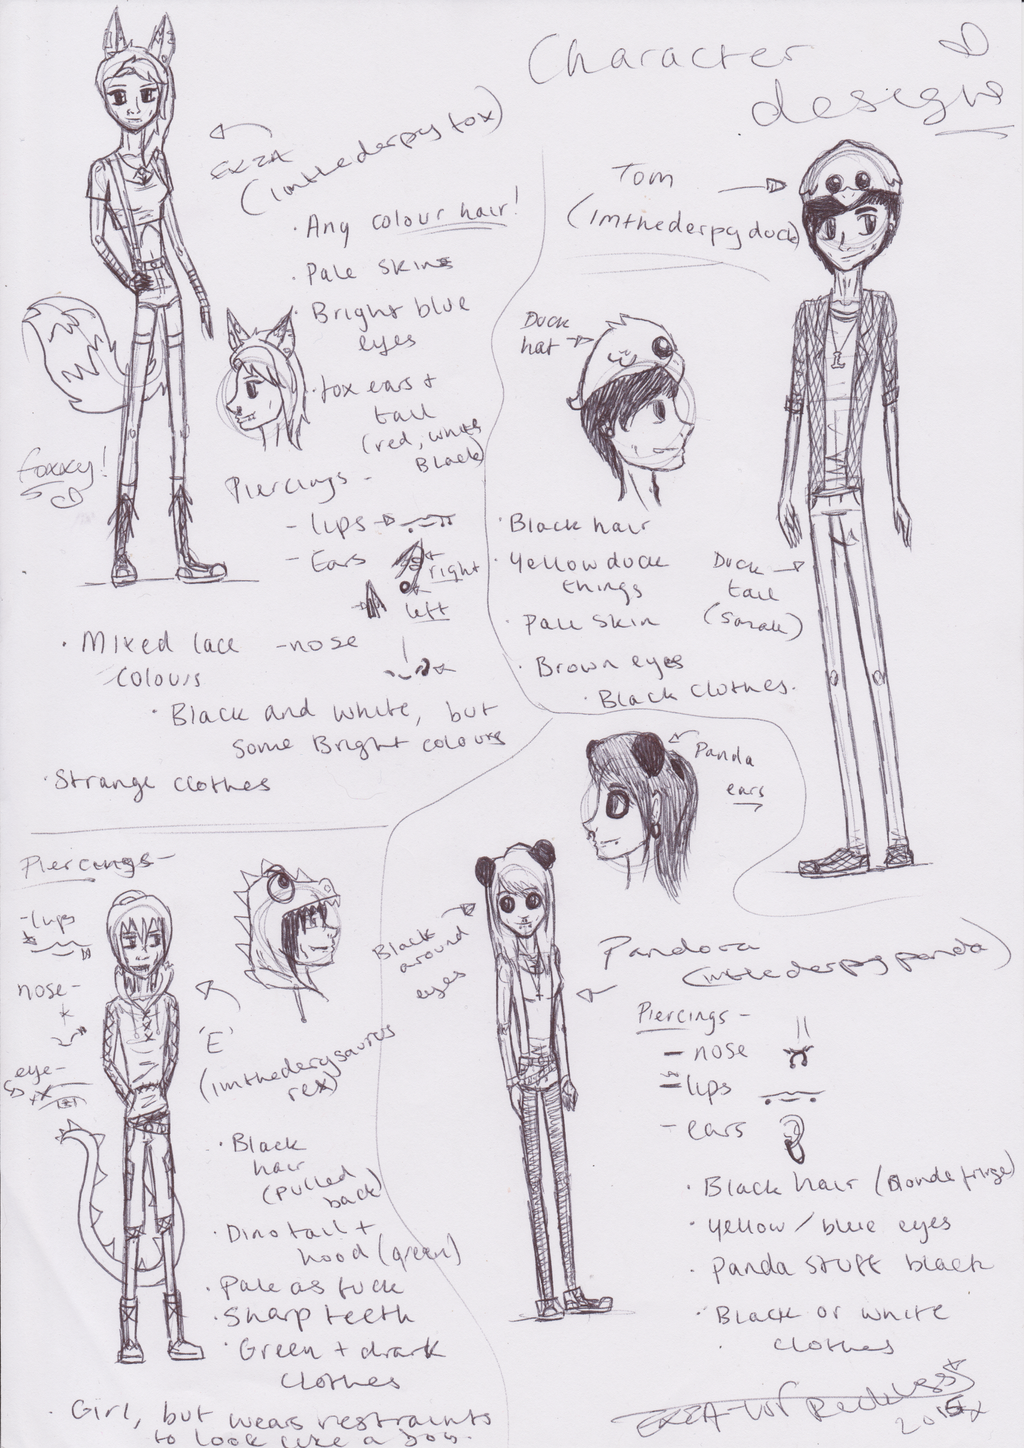 Character
designs
EKZA
(imthederpyfox)
• Any colour hair!
• Pale skin
• Bright blue
eyes
• fox ears +
tail
(red, white
Black)
foxxy!
Piercings -
- lips
- Ears
right
left
- nose
• Mixed lace
colours
• Black and white, but
some Bright colours
• Strange clothes
Tom
(imthederpyduck)
Duck
hat
• Black hair
• Yellow duck
things
• Pale skin
• Brown eyes
• Black clothes.
Duck
tail
(small)
Panda
ears
Piercings -
- lips
nose -
eye -
'E'
(imthederpysaurus
rex)
• Black
hair
(pulled
back)
• Dino tail +
hood (green)
• Pale as fuck
• Sharp teeth
• Green + drark
clothes
• Girl, but wears restraints
to look like a boy.
Black
around
eyes
Pandora
(imthederpypanda)
Piercings -
- nose
= lips
- ears
• Black hair (blonde fringe)
• Yellow/blue eyes
• Panda stuff black
• Black or white
clothes